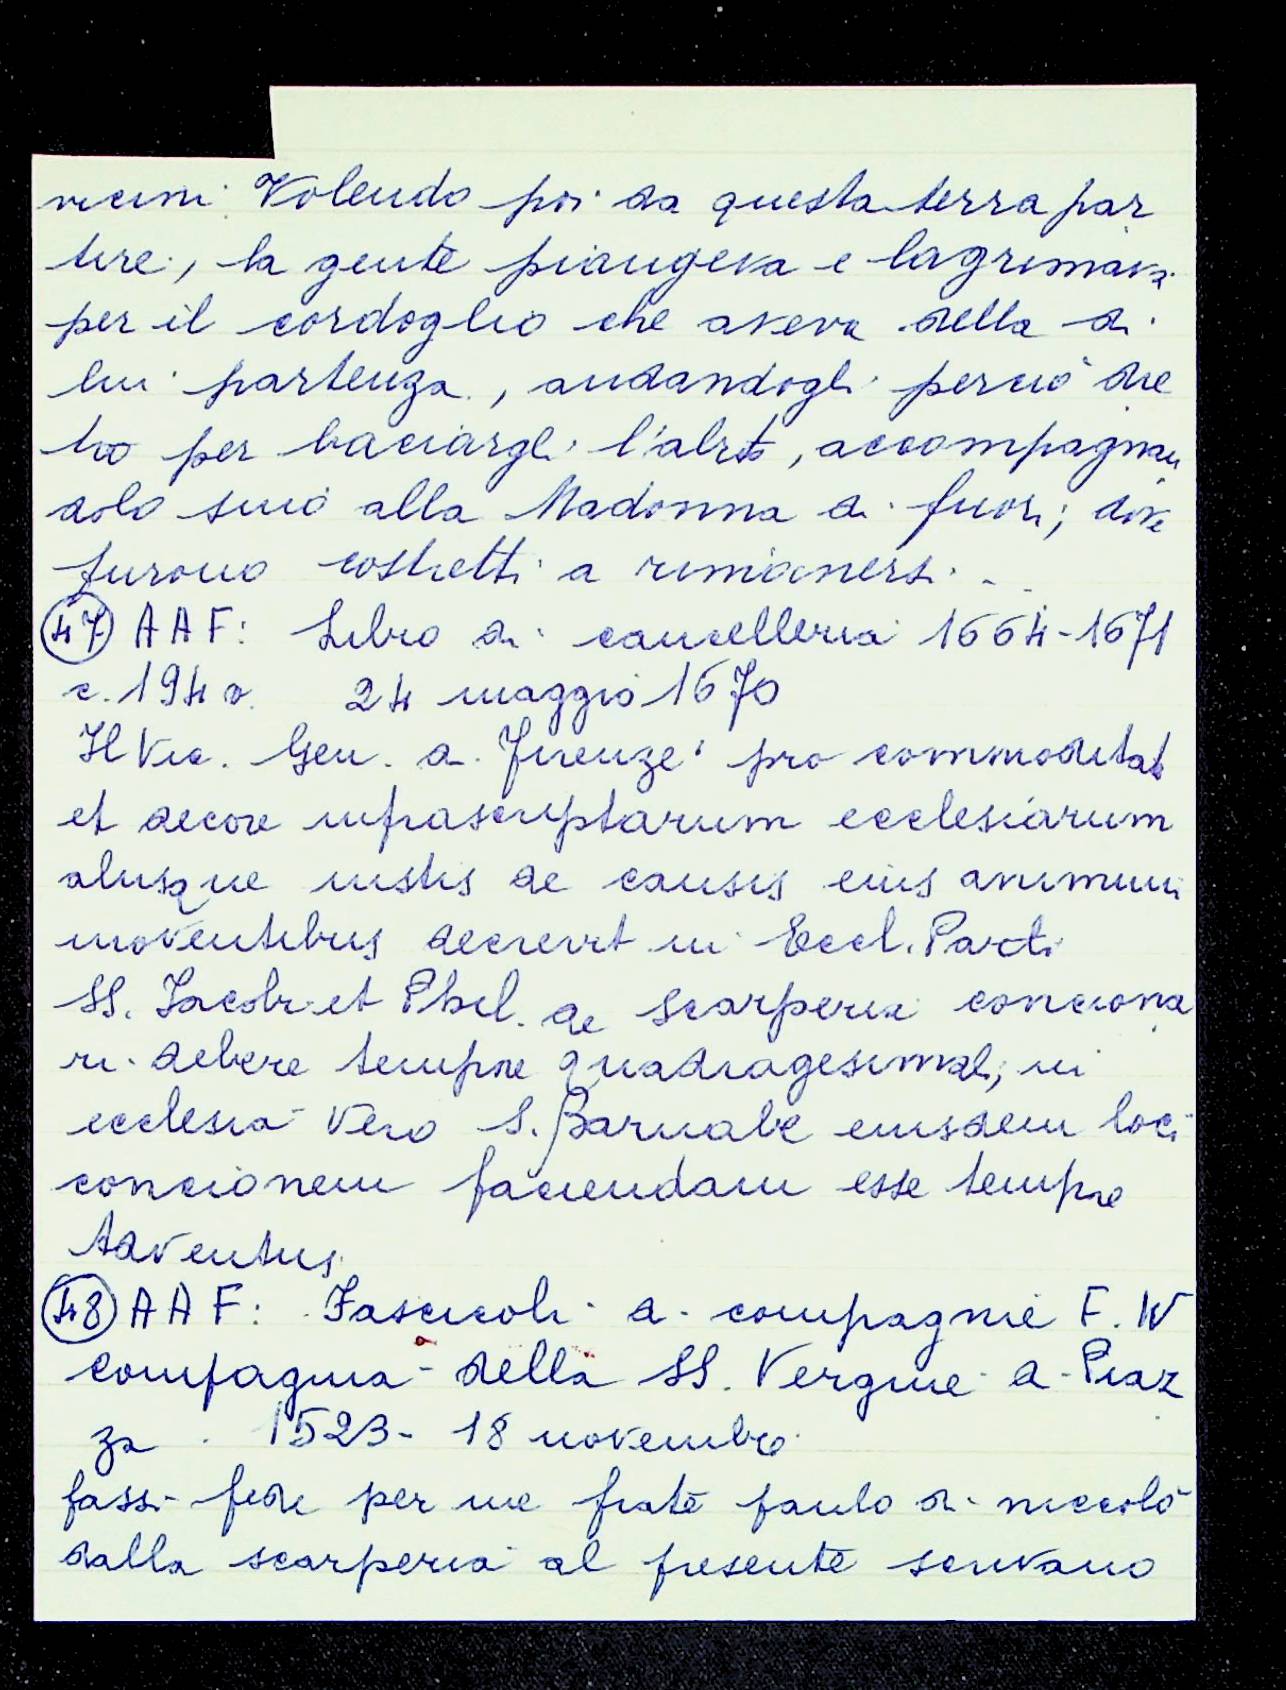 vicini. Volendo poi da questa terra par
tire, la gente piangeva e lagrimava
per il cordoglio che aveva della di
lui partenza, andandogli perciò die
tro per baciargli l'abito, accompagnan
dolo sino alla Madonna di fuori; dove
furono costretti a rimanersi..
47 AAF: Libro di cancelleria 1664-1671
c. 194 v. 24 maggio 1670
Il Vic. Gen. di Firenze: pro commoditate
et decore infrascriptarum ecclesiarum
aliisque iustis de causis eius animum
moventibus decrevit in Eccl. Parti
SS. Jacobi et Phil. de Scarperia conciona
ri debere tempore quadragesimali, in
ecclesia vero S. Barnabe eiusdem loci
concionem faciendam esse tempore
Adventus.
48 AAF: Fascicoli di compagnie F. IV
compagnia della SS. Vergine di Piaz
za. 1523- 18 novembre
fassi fede per me frate paulo di niccolò
dalla scarperia al presente scrivano